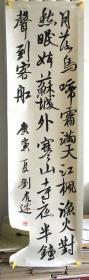 月落烏啼霜滿天江楓漁火對
愁眠姑蘇城外寒山寺夜半鐘
聲到客船 庚寅夏劉彥述